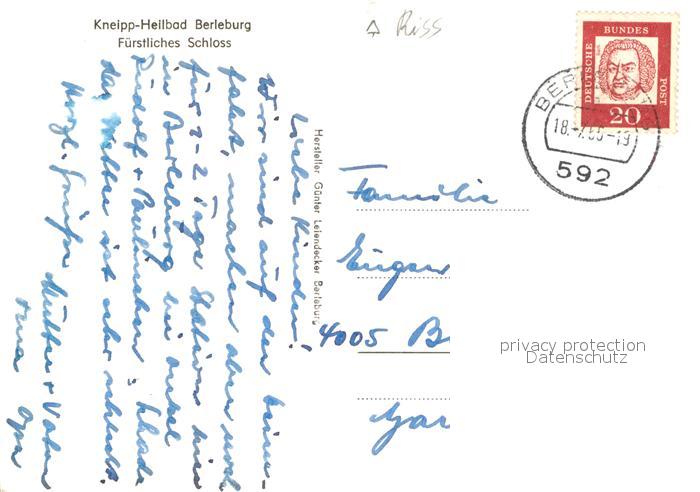 Kneipp-Heilbad Berleburg
Fürstliches Schloss
Riss
DEUTSCHE BUNDES POST
20
18.
-19
592
Liebe Kinder!
Wir sind auf der Heim-
fahrt, machen aber noch
für 1-2 Tage Station hier
in Berleburg bei Onkel
Rudolf + Paulinchen. Schade
das Wetter ist sehr schlecht.
Herzl. Grüße
Mutter + Vater
Oma Opa
Hersteller Günter Leiendecker Berleburg
Familie
Eugen
4005 B
Gar
privacy protection
Datenschutz